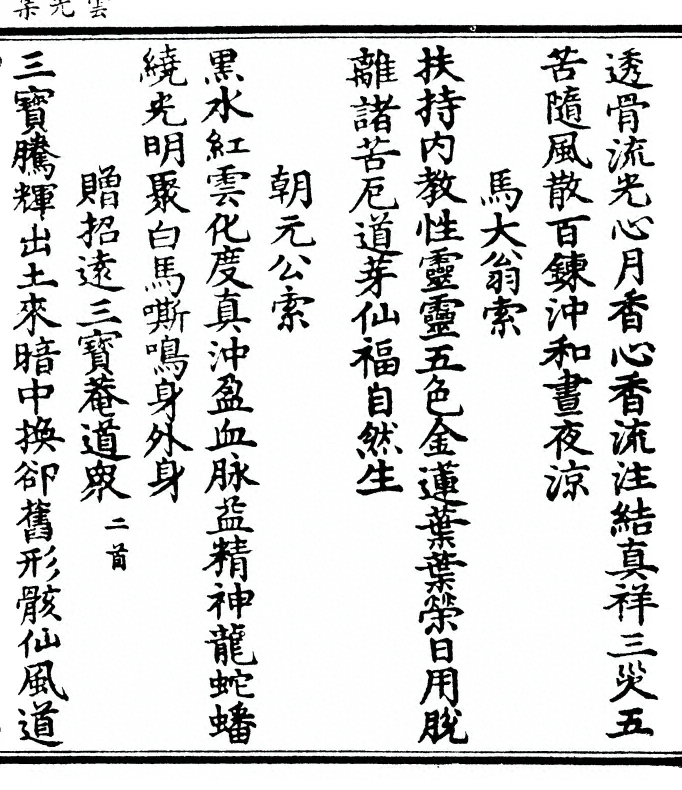 透骨流光心月香心香流注結真祥三災五
苦隨風散百鍊沖和晝夜涼
馬大翁索
扶持内教性靈靈五色金蓮葉葉榮日用脫
離諸苦厄道芽仙福自然生
朝元公索
黒水紅雲化度真沖盈血脉益精神龍蛇蟠
繞光明聚白馬嘶鳴身外身
贈招遠三寶菴道衆二首
三寶騰輝出土來暗中換卻舊形骸仙風道